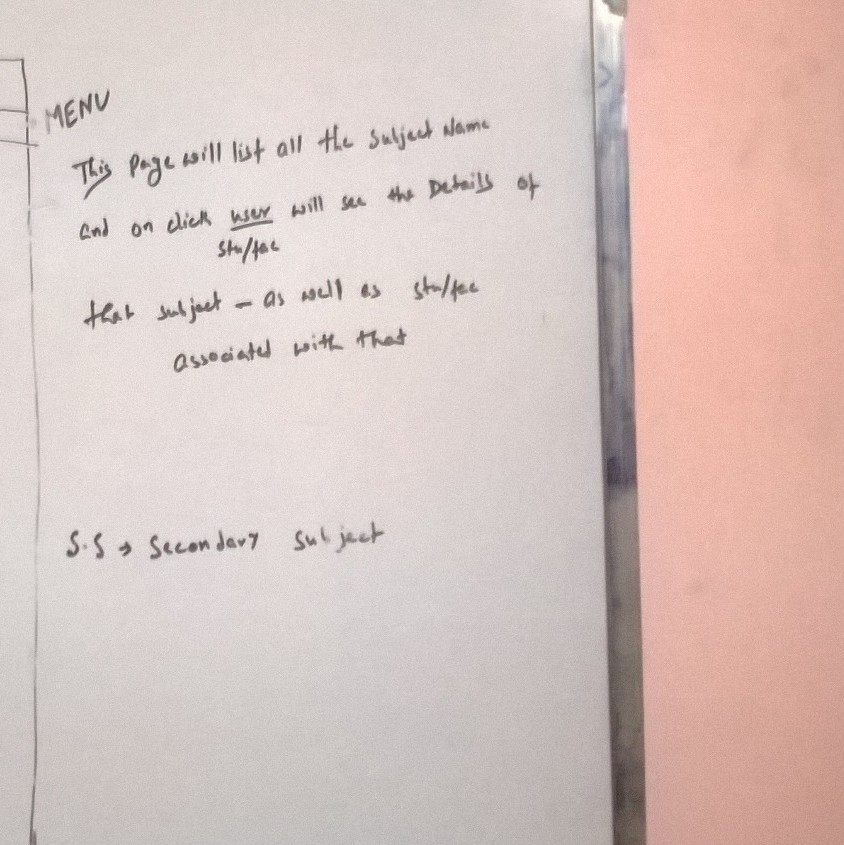 MENU
This Page will list all the Subject Name
and on click user will see the Details of
stu/fac
that subject - as well as stu/fac
associated with that
S.S → Secondary Subject